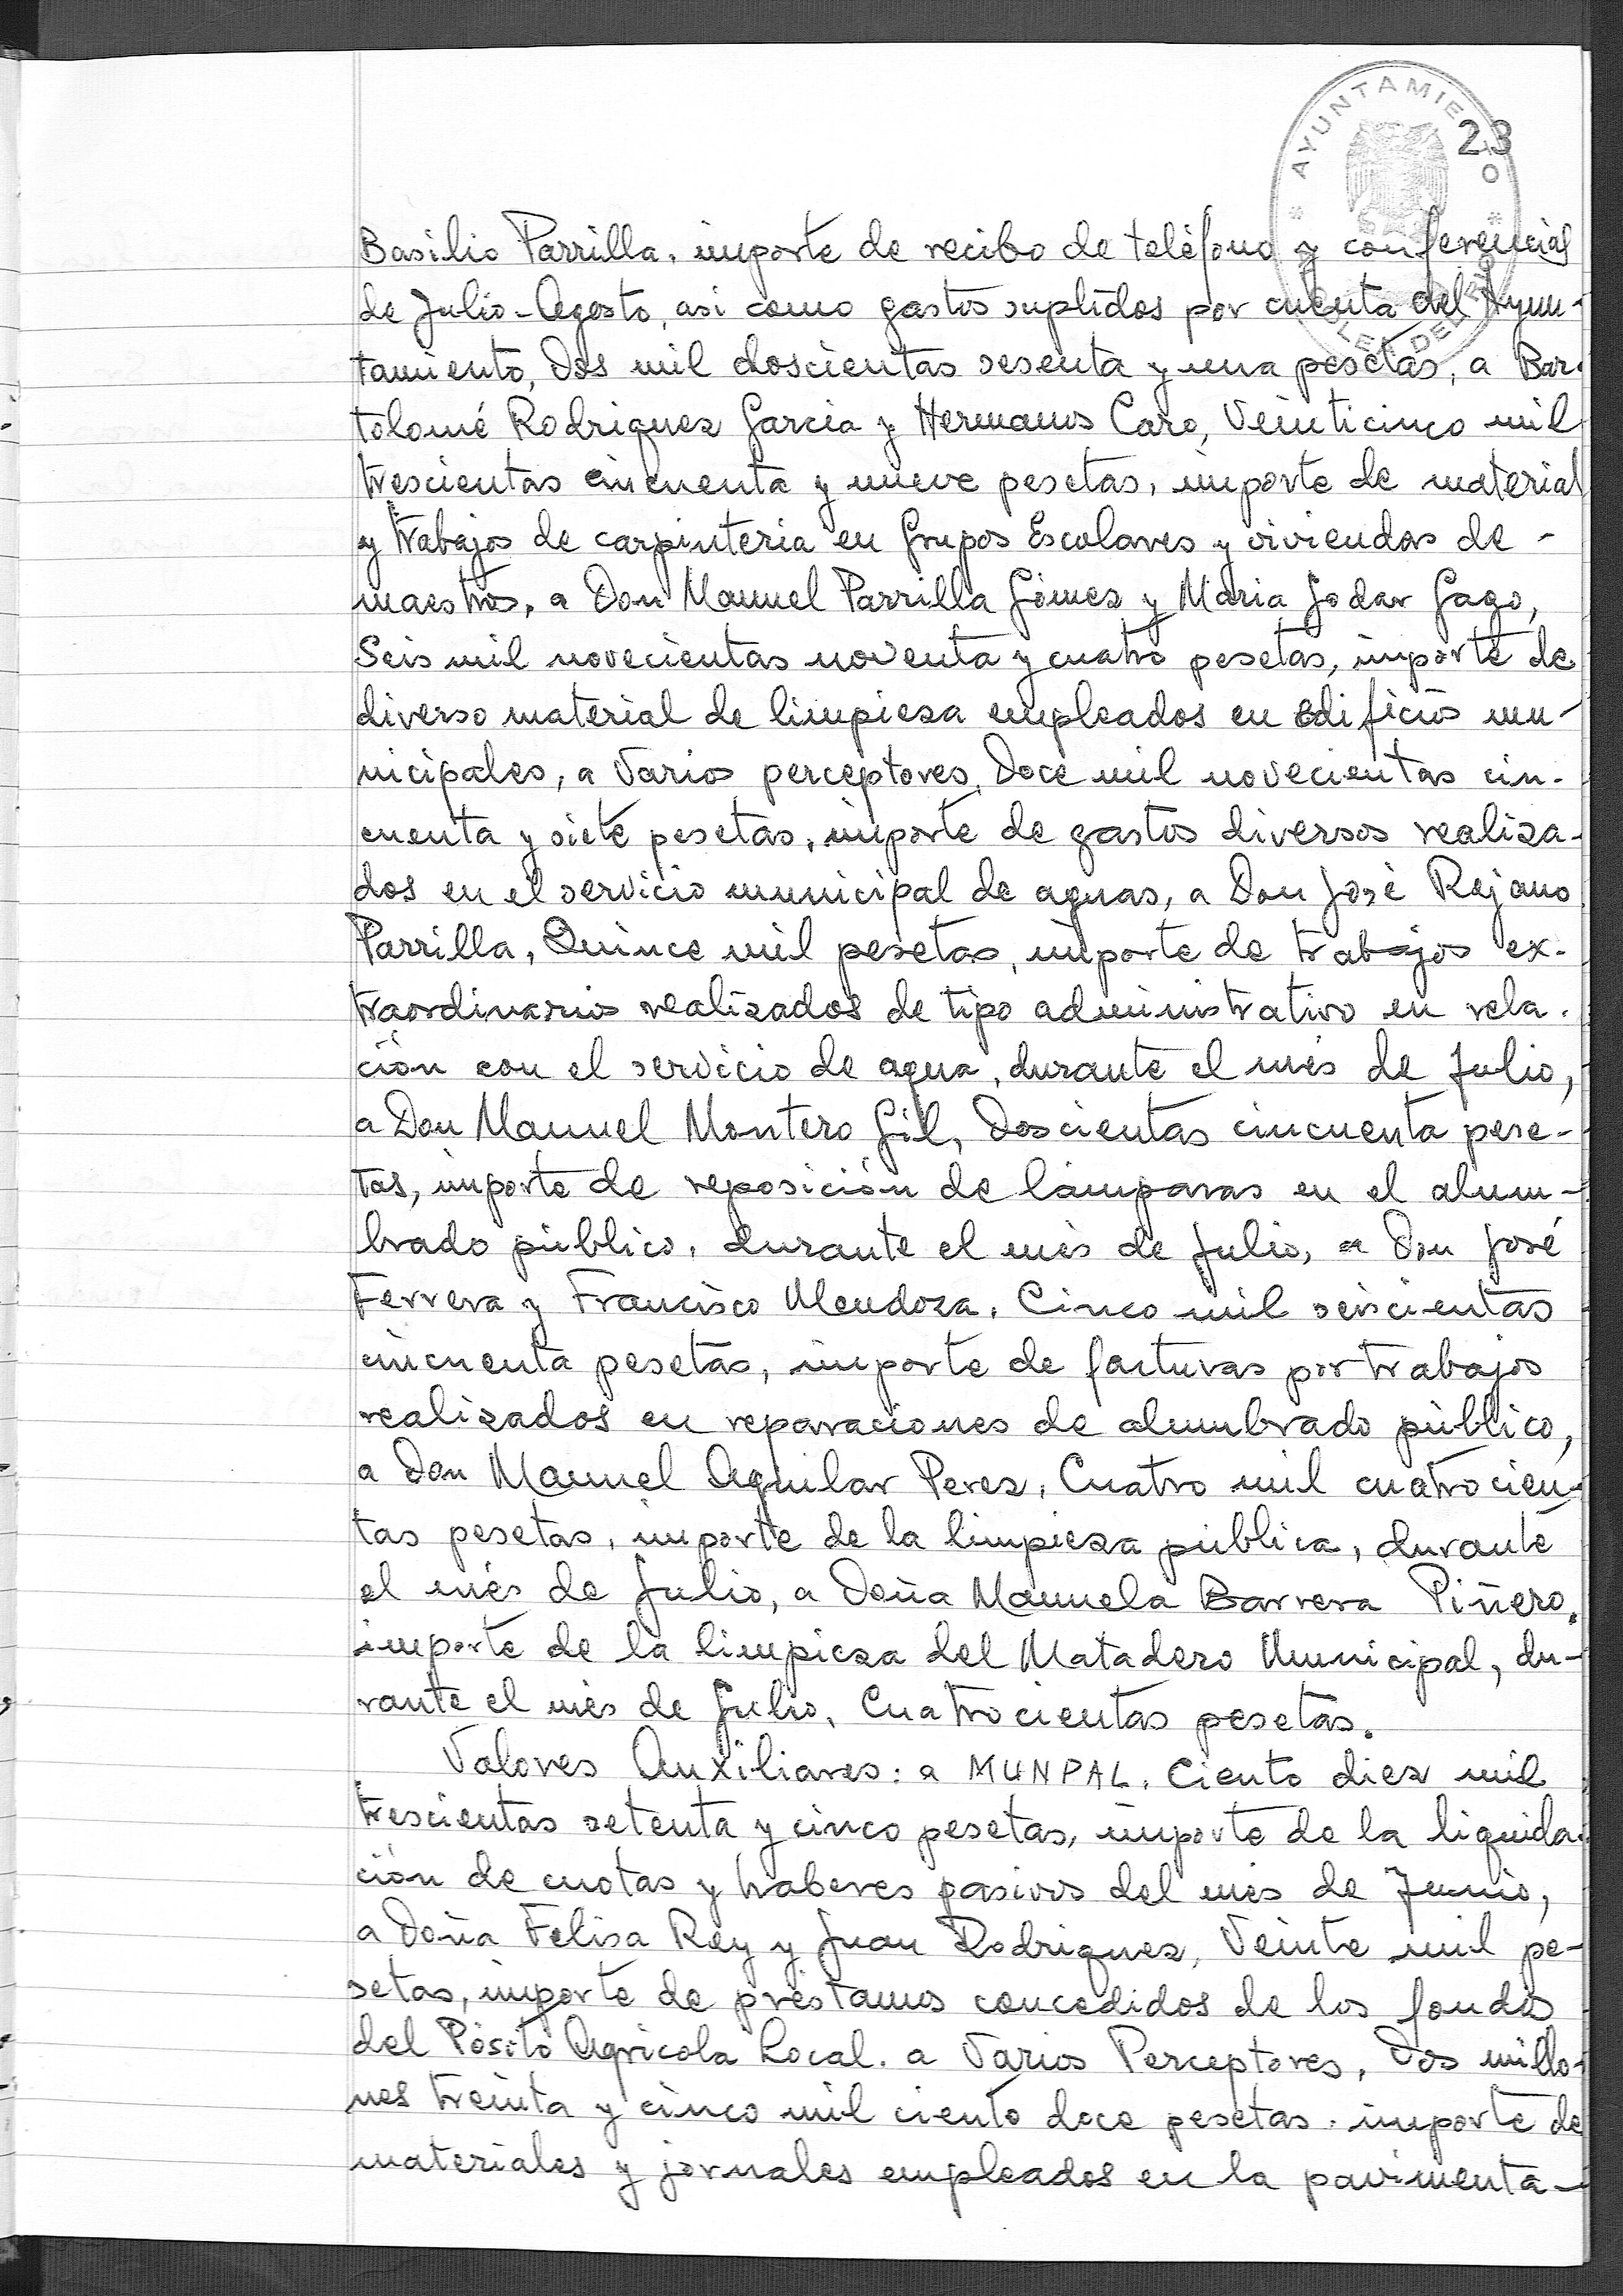 AYUNTAMIENTO
23
Basilio Parrilla, importe de recibo de teléfono y conferencias
de Julio-Agosto, asi como gastos suplidos por cuenta del Ayun-
tamiento, Dos mil doscientas sesenta y una pesetas, a Bar-
tolomé Rodriguez Garcia y Hermanos Caro, Veinticinco mil
trescientas cincuenta y nueve pesetas, importe de material
y trabajos de carpinteria en Grupos Escolares y viviendas de -
maestros, a Don Manuel Parrilla Gómez y Maria Jodar Gago,
Seis mil novecientas noventa y cuatro pesetas, importe de
diverso material de limpieza empleados en Edificios mu-
nicipales, a Varios perceptores, Doce mil novecientas cin-
cuenta y siete pesetas, importe de gastos diversos realiza-
dos en el servicio municipal de aguas, a Don José Rejano
Parrilla, Quince mil pesetas, importe de trabajos ex-
traordinarios realizados de tipo administrativo en rela-
ción con el servicio de agua, durante el més de Julio,
a Don Manuel Montero Gil, Doscientas cincuenta pese-
tas, importe de reposición de lámparas en el alum-
brado público, durante el més de Julio, a Don José
Ferrera y Francisco Mendoza, Cinco mil seiscientas
cincuenta pesetas, importe de facturas por trabajos
realizados en reparaciones de alumbrado público,
a Don Manuel Aguilar Perez, Cuatro mil cuatrocien-
tas pesetas, importe de la limpieza pública, durante
el més de Julio, a Doña Manuela Barrera Piñero,
importe de la limpieza del Matadero Municipal, du-
rante el més de Julio, Cuatrocientas pesetas.
Valores Auxiliares: a MUNPAL, Ciento diez mil
trescientas setenta y cinco pesetas, importe de la liquida-
ción de cuotas y haberes pasivos del més de Junio,
a Doña Felisa Rey y Juan Rodriguez, Veinte mil pe-
setas, importe de préstamos concedidos de los fondos
del Pósito Agricola Local. a Varios Perceptores, Dos millo-
nes treinta y cinco mil ciento doce pesetas, importe de
materiales y jornales empleados en la pavimenta-